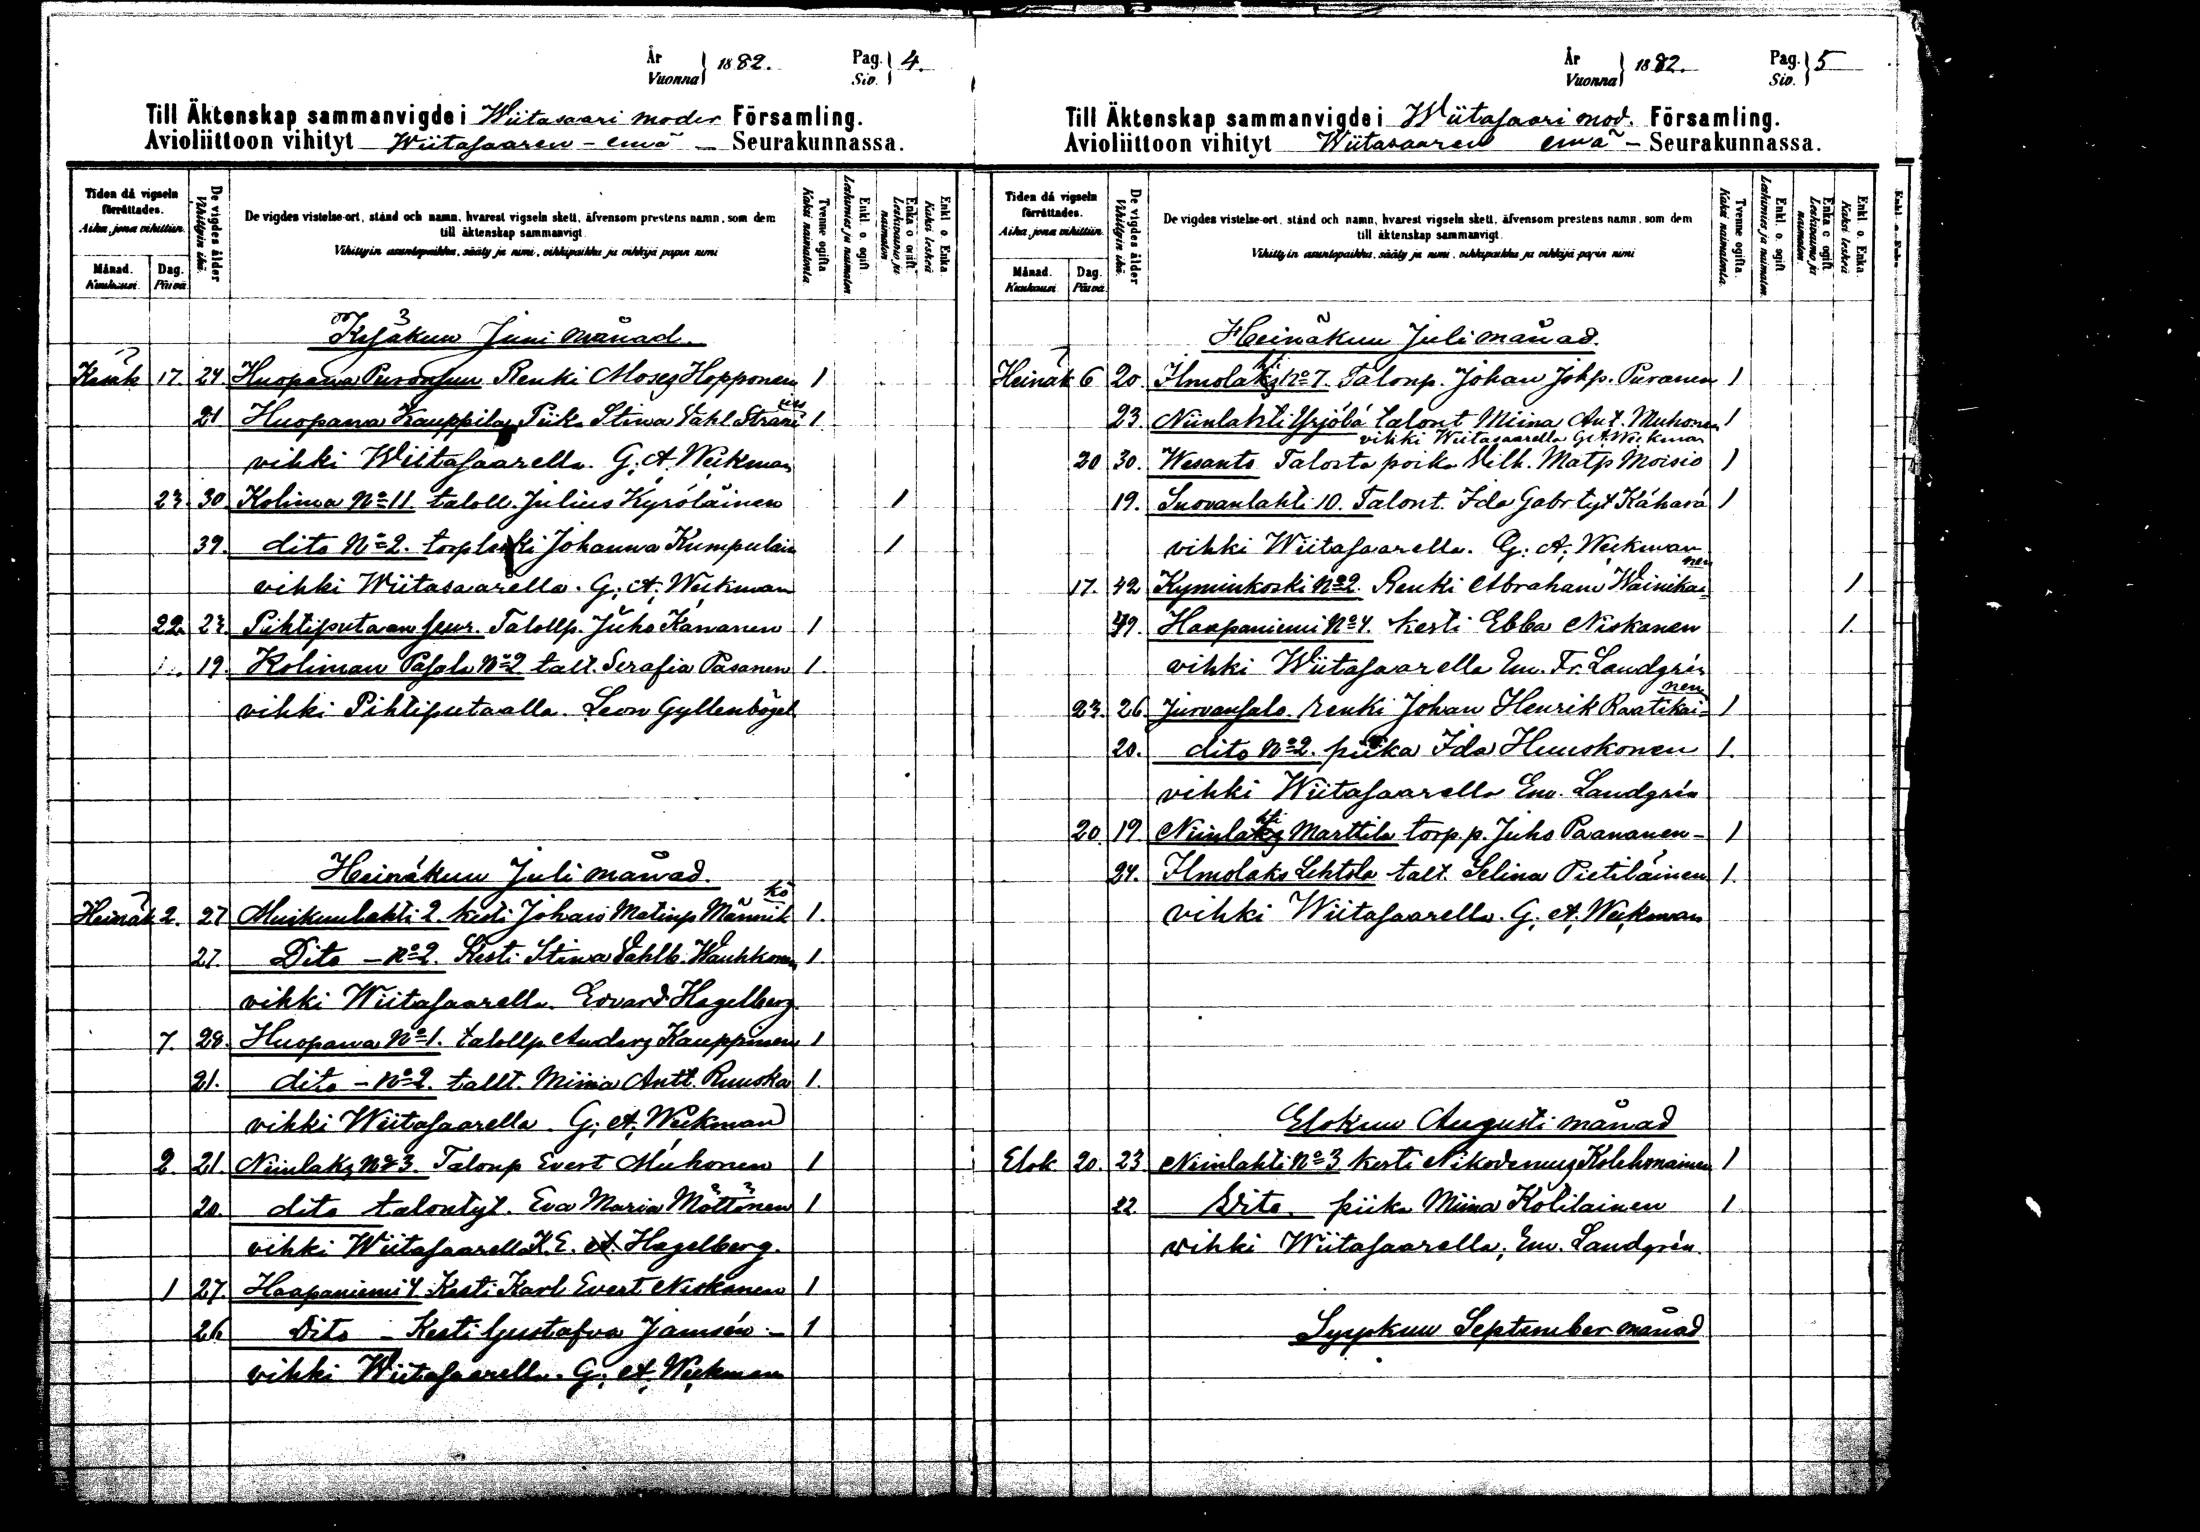 År Vuonna 1882. Pag. Siv. 4.
Till Äktenskap sammanvigde i Wiitasaari moder Församling.
Avioliittoon vihityt Wiitasaaren - emä - Seurakunnassa.
Tiden då vigseln förrättades.
Aika, jona vihittiin.
Månad. Kuukausi.
Dag. Päivä.
De vigdes ålder
Vihittyin ikä.
De vigdes vistelse-ort, stånd och namn, hvarest vigseln skett, äfvensom prestens namn, som dem
till äktenskap sammanvigt.
Vihittyin asuntopaikka, sääty ja nimi, vihkipaikka ja vihkijä papin nimi
Tvenne ogifta
Kaksi naimatonta.
Enkl. o. ogift
Leskimies ja naimaton
Enka o ogift
Leskivaimo ja naimaton
Enkl o. Enka.
Kaksi leskeä
Kesäkuu Juni månad.
Kesäk 17. 24 Huopana Puronsuu Renki Moses Hopponen 1
21 Huopana Kauppila Piika Stina Vahl. 1
vihki Wiitasaarella. G. A. Weikman
23. 30 Kolima No 11. taloll. Julius Kyröläinen 1
39. dito No 2. torpleski Johanna Kumpulain 1
vihki Wiitasaarella. G. A. Weikman
22. 23. Pihtiputaan seur. Talollp. Juho Kananen 1
19. Koliman Pasala No 2 talt. Serafia Pasanen 1.
vihki Pihtiputaalla. Leon Gyllenbögel
Heinäkuu Juli månad.
Heinäk 2. 27 Muikunlahti 2. kesti Johan Matinp Männikkö 1.
27. Dito - No 2. Kesti Stina Vahlb. Wauhkonen 1.
vihki Wiitasaarella. Edvard Hagelberg.
7. 28. Huopana No 1. talollp Anders Kauppinen 1
21. dito - No 2. tallt. Miina Antt. Ruuska 1.
vihki Wiitasaarella. G. A. Weikman
2. 21. Niinlaks No 3. Talonp Evert Muhonen 1
20. dito talontyt. Eva Maria Möttönen 1
vihki Wiitasaarella K. E. Hagelberg.
1 27. Haapaniemi 4 Kesti Karl Evert Niskanen 1
26 Dito - Kesti Gustafva Jamsén - 1
vihki Wiitasaarella. G. A. Weikman
År Vuonna 1882. Pag. Siv. 5
Till Äktenskap sammanvigde i Wiitasaari mod. Församling.
Avioliittoon vihityt Wiitasaaren emä - Seurakunnassa.
Tiden då vigseln förrättades.
Aika, jona vihittiin.
Månad. Kuukausi
Dag. Päivä
De vigdes ålder
Vihittyin ikä.
De vigdes vistelse-ort, stånd och namn, hvarest vigseln skett, äfvensom prestens namn, som dem
till äktenskap sammanvigt.
Vihittyin asuntopaikka, sääty ja nimi, vihkipaikka ja vihkijä papin nimi
Tvenne ogifta.
Kaksi naimatonta.
Enkl. o. ogift
Leskimies ja naimaton.
Enka o ogift
Leskivaimo ja naimaton.
Enkl o. Enka.
Kaksi leskeä
Heinäkuu Juli månad.
Heinäk 6 20. Ilmolahti No 7. Talonp. Johan Johp. Puranen 1
23. Niinlahti Yrjölä talont Miina Ant. Muhonen 1
vihki Wiitasaarella G. A. Weikman
20 30. Wesanto Talosta poika Vilh. Matp Moisio 1
19. Suovanlahti 10. Talont. Ida Gabr tyt Kähärä 1
vihki Wiitasaarella. G. A. Weikman
17. 42 Kyminkoski No 2. Renki Abraham Wainikainen 1
49. Haapaniemi No 4. kesti Ebba Niskanen 1.
vihki Wiitasaarella Em. Fr. Landgrén
23. 26. Jurvansalo renki Johan Henrik Raatikainen 1
20. dito No 2. piika Ida Huuskonen 1.
vihki Wiitasaarella Em. Landgrén
20. 19. Niinlahti Marttila torp. p. Juho Paananen - 1
24. Ilmolaks Lehtola talt. Selina Pietiläinen 1.
vihki Wiitasaarella. G. A. Weikman
Elokuu Augusti månad
Elok 20. 23 Niinlahti No 3 kesti Nikodemus Kolehmainen 1
22. Dito. piika Miina Kotilainen 1
vihki Wiitasaarella, Em. Landgrén.
Syyskuu September månad